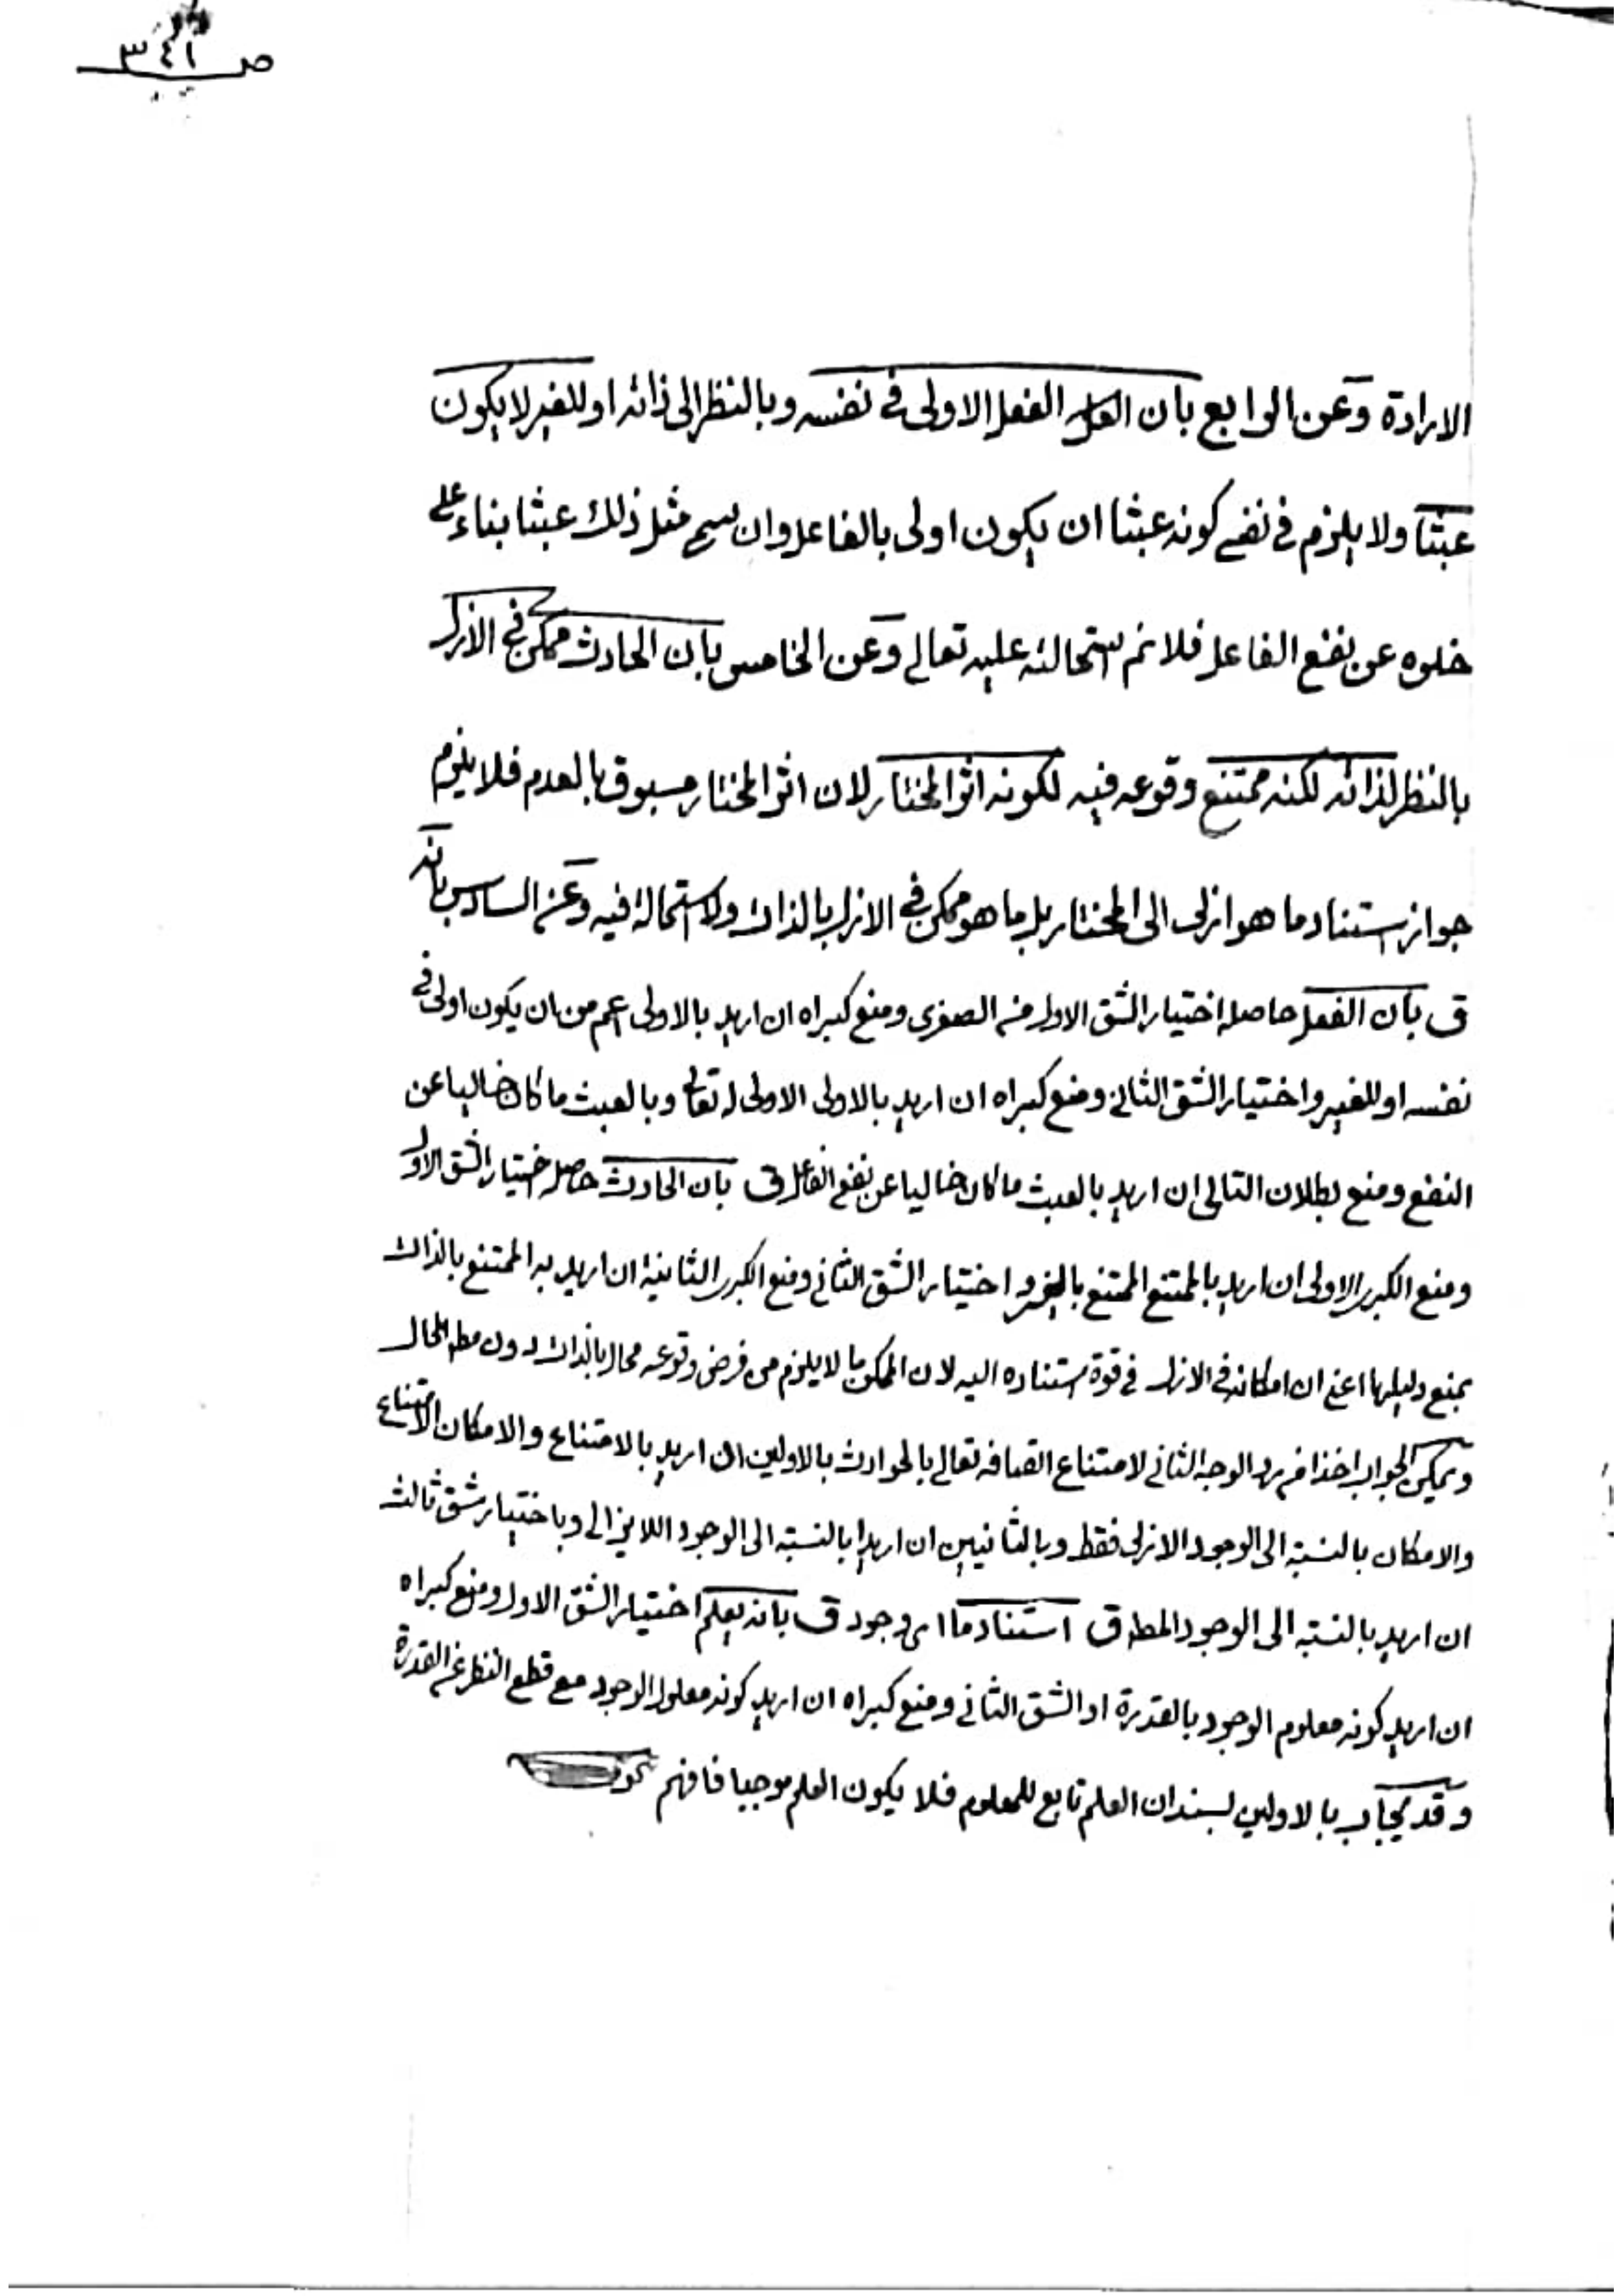 ص ٣٤١
الارادة وعن الرابع بان الفعل الاولى في نفسه وبالنظر الى ذاته او للغير لا يكون
عبثا ولا يلزم في نفي كونه عبثا ان يكون اولى بالفاعل وان سمي مثل ذلك عبثا بناء على
خلوه عن نفع الفاعل فلا نم استحالته عليه تعالى وعن الخامس بان الحادث ممكن في الازل
بالنظر لذاته لكنه ممتنع وقوعه فيه لكونه اثر المختار لان اثر المختار مسبوق بالعدم فلا يلزم
جواز استناد ما هو ازلي الى المختار بل ما هو ممكن في الازل بالذات ولا استحالة فيه وعن السادس بانه
ق بان الفعل حاصله اختيار الشق الاول من الصغرى ومنع كبراه ان اريد بالاولى اعم من ان يكون اولى في
نفسه او للغير واختيار الشق الثاني ومنع كبراه ان اريد بالاولى الاولى له تعالى وبالعبث ما كان خاليا عن
النفع ومنع بطلان التالي ان اريد بالعبث ما كان خاليا عن نفع الفاعل ق بان الحادث حاصله اختيار الشق الاول
ومنع الكبرى الاولى ان اريد بالممتنع الممتنع بالغير واختيار الشق الثاني ومنع الكبرى الثانية ان اريد به الممتنع بالذات
بمنع دليلها اعني ان امكانه في الازل في قوة استناده اليه لان الممكن ما لا يلزم من فرض وقوعه محال بالذات دون مط المحال
ويمكن الجواب اخذا من رد الوجه الثاني لامتناع اتصافه تعالى بالحوادث بالاولين ان اريد بالامتناع والامكان الامتناع
والامكان بالنسبة الى الوجود الازلي فقط وبالثانيين ان اريدا بالنسبة الى الوجود اللايزالي وباختيار شق ثالث
ان اريد بالنسبة الى الوجود المط ق استناد ما اى وجود ق بانه يعلم اختيار الشق الاول ومنع كبراه
ان اريد كونه معلوم الوجود بالقدرة او الشق الثاني ومنع كبراه ان اريد كونه معلول الوجود مع قطع النظر عن القدرة
وقد يجاب بالاولين بسند ان العلم تابع للمعلوم فلا يكون العلم موجبا فافهم